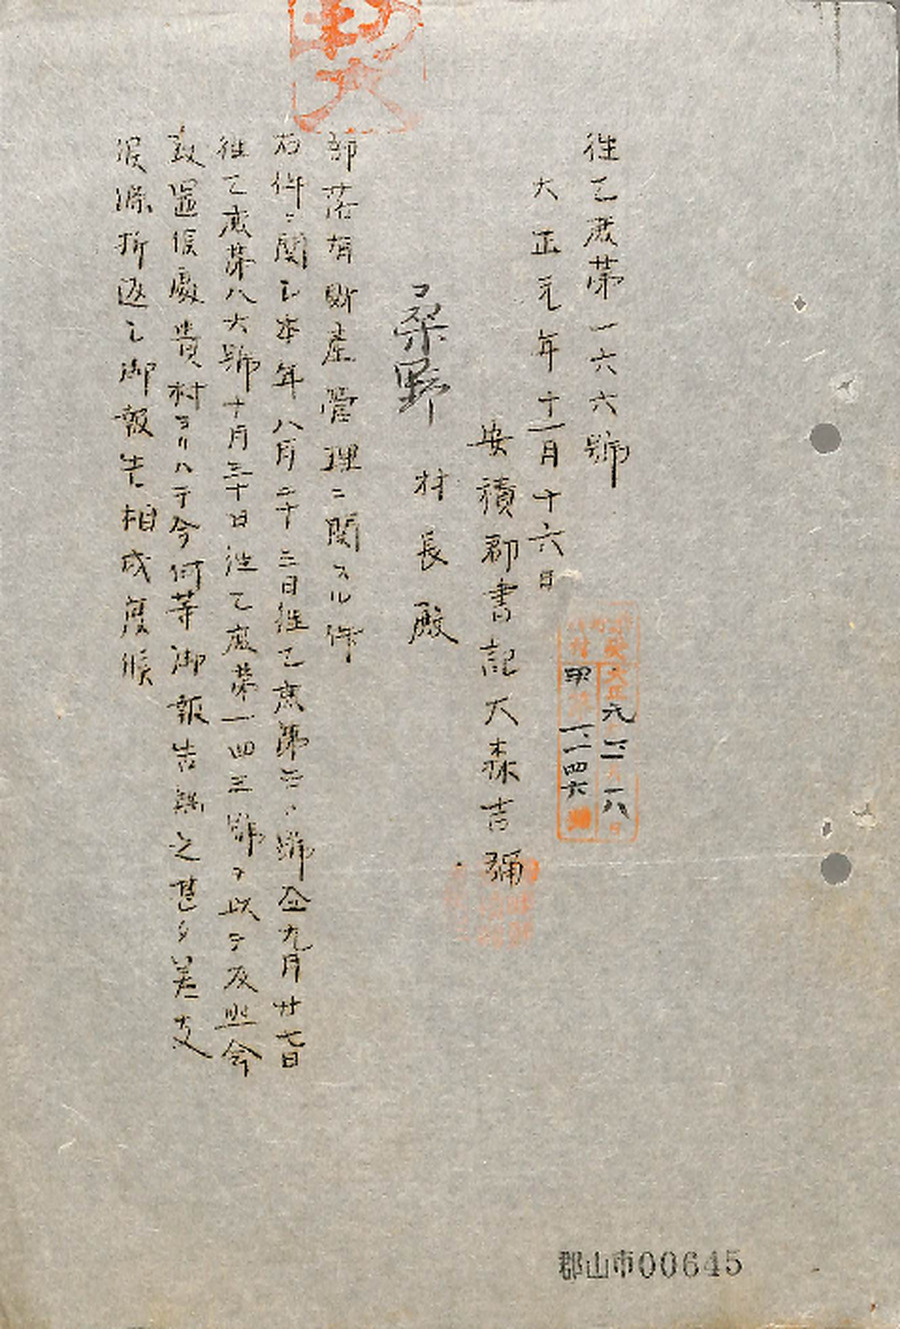 往乙庶第一六六號
大正元年十一月十六日
安積郡書記大森吉彌
桑野村長殿
部落有財産管理ニ関スル件
右件ニ関シ本年八月二十三日往乙庶第号仝九月廿七日
往乙庶第八六號十月三十日往乙庶第一四三號ヲ以テ及照会
致置候處貴村ヨリハ于今何等御報告無之甚タ差支
候條折返シ御報告相成度候
大正元 一二 一八日
甲 一一四六 號
郡山市00645